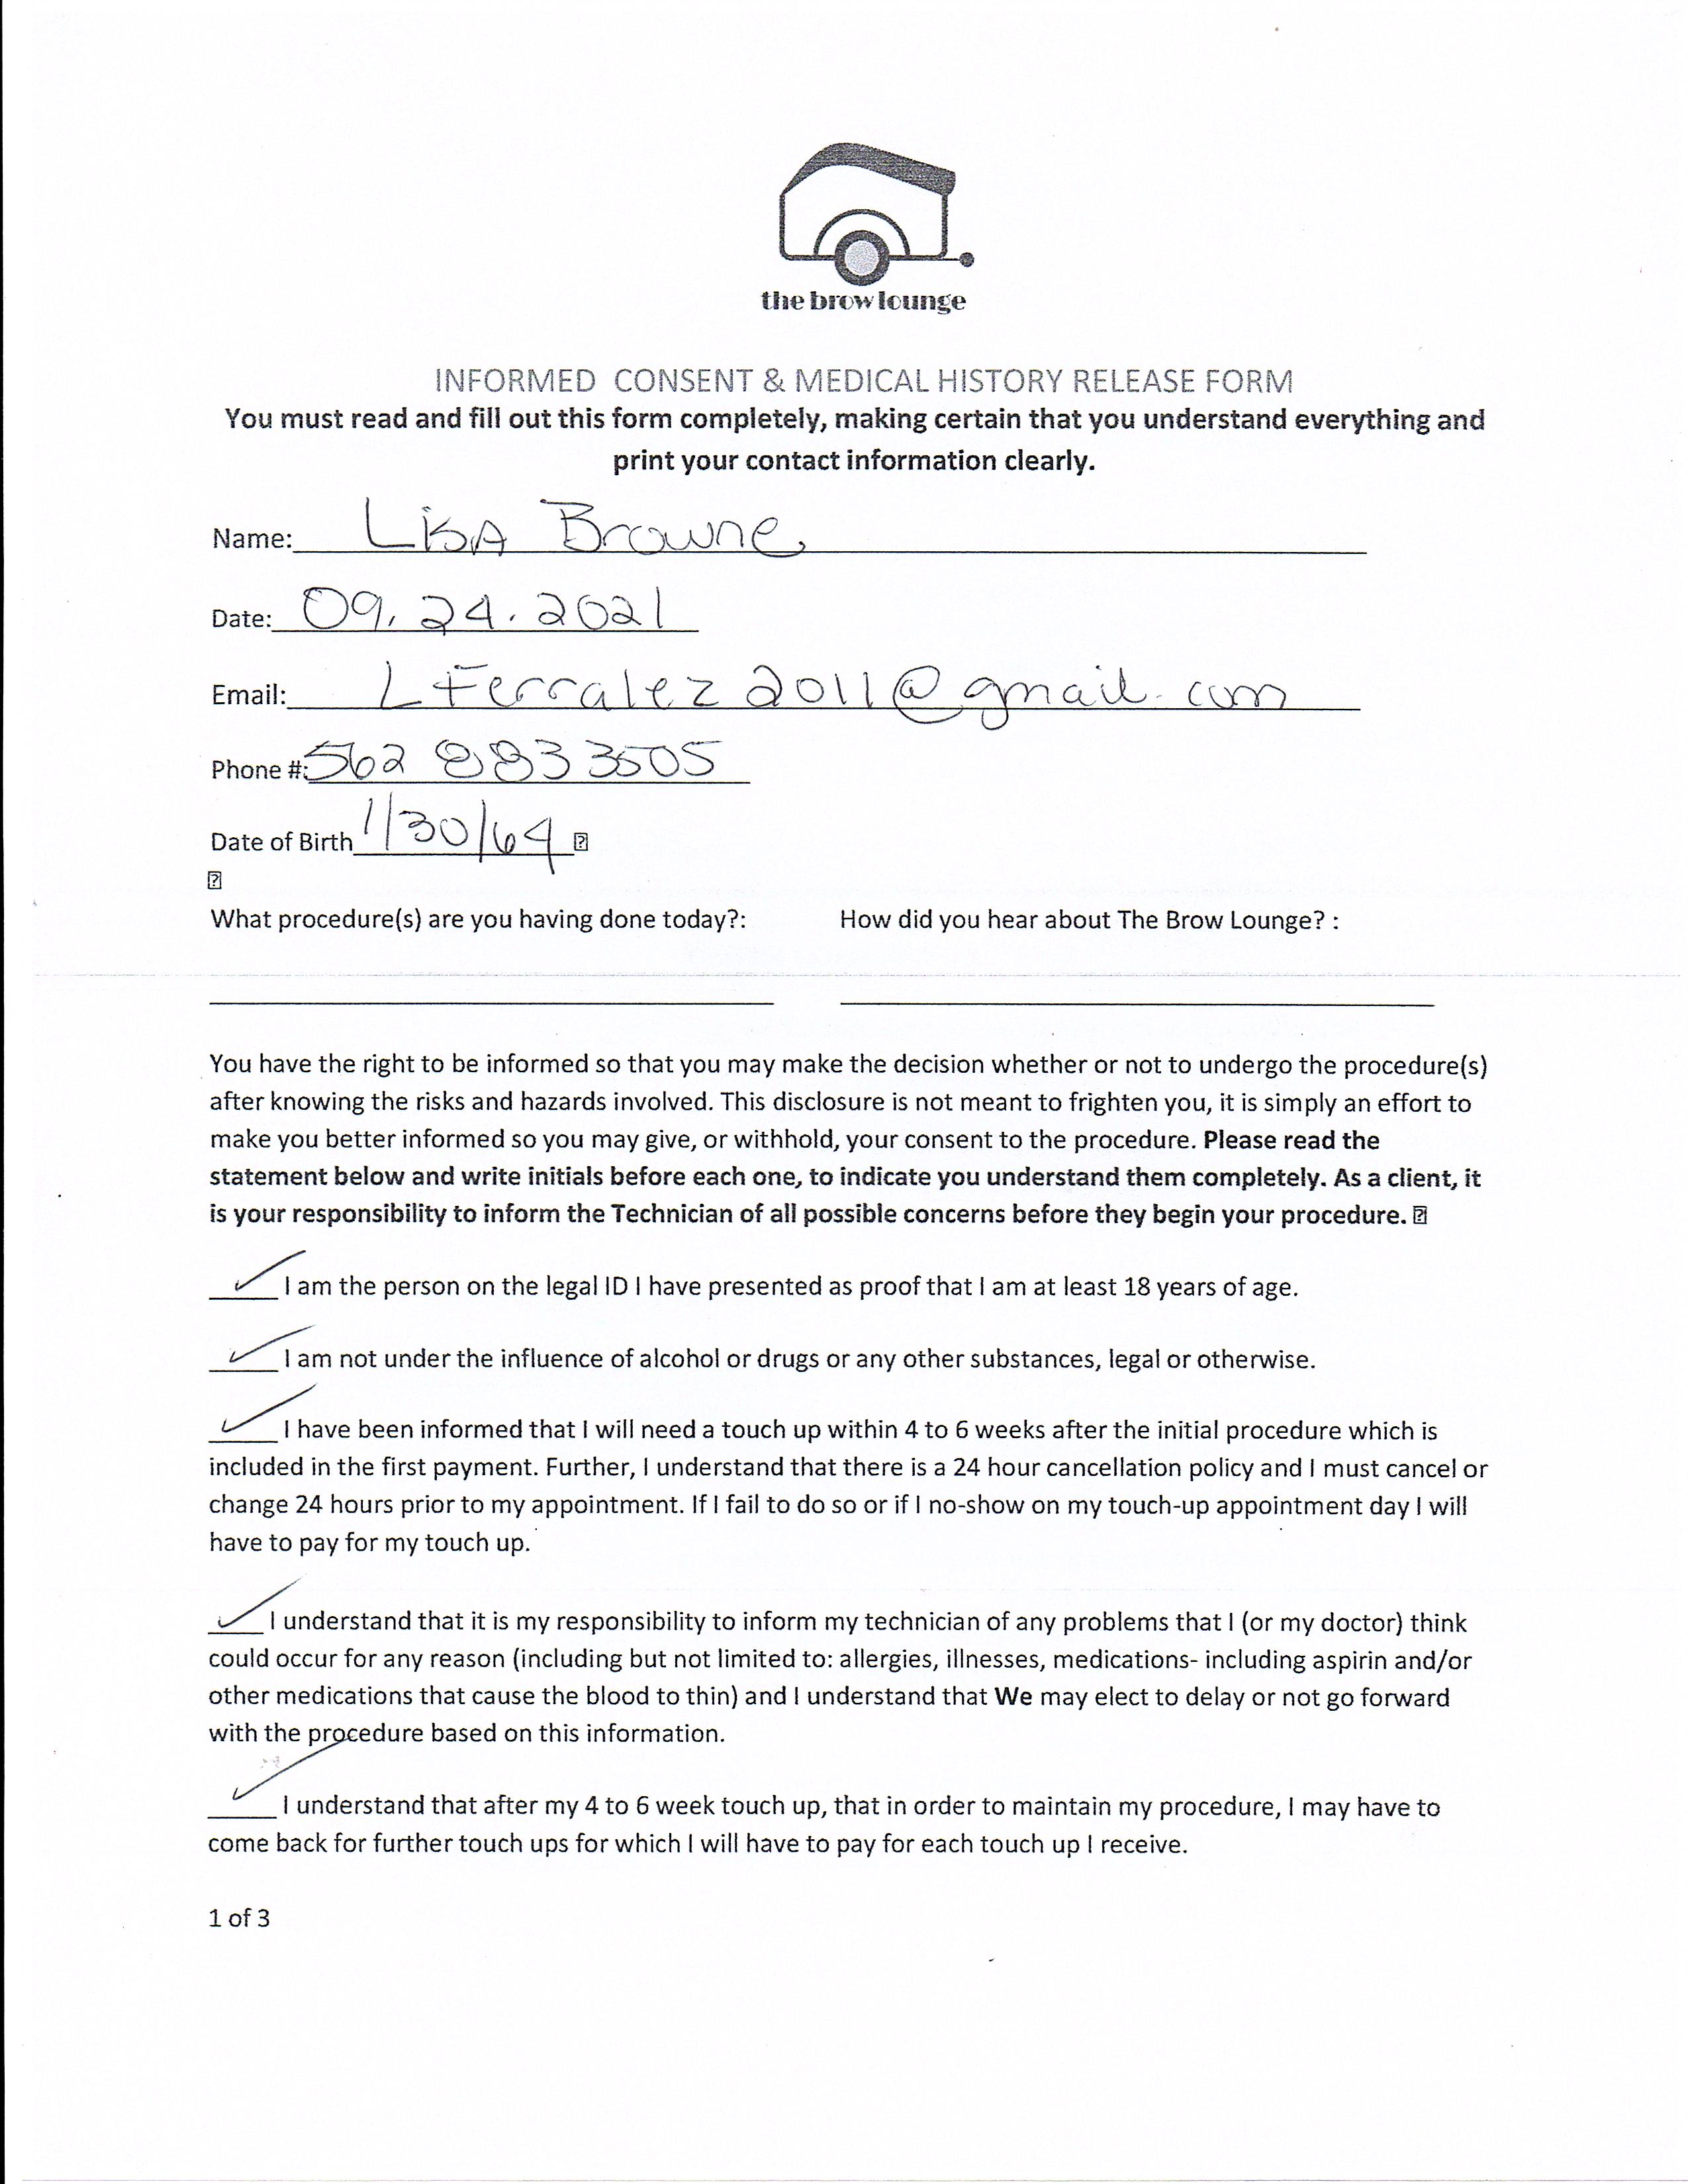 the brow lounge
INFORMED CONSENT & MEDICAL HISTORY RELEASE FORM
You must read and fill out this form completely, making certain that you understand everything and
print your contact information clearly.
Name: Lisa Browne
Date: 09.24.2021
Email: LFerralez2011@gmail.com
Phone #: 562 883 3505
Date of Birth 1/30/64
What procedure(s) are you having done today?: How did you hear about The Brow Lounge? :
You have the right to be informed so that you may make the decision whether or not to undergo the procedure(s)
after knowing the risks and hazards involved. This disclosure is not meant to frighten you, it is simply an effort to
make you better informed so you may give, or withhold, your consent to the procedure. Please read the
statement below and write initials before each one, to indicate you understand them completely. As a client, it
is your responsibility to inform the Technician of all possible concerns before they begin your procedure.
✓ I am the person on the legal ID I have presented as proof that I am at least 18 years of age.
✓ I am not under the influence of alcohol or drugs or any other substances, legal or otherwise.
✓ I have been informed that I will need a touch up within 4 to 6 weeks after the initial procedure which is
included in the first payment. Further, I understand that there is a 24 hour cancellation policy and I must cancel or
change 24 hours prior to my appointment. If I fail to do so or if I no-show on my touch-up appointment day I will
have to pay for my touch up.
✓ I understand that it is my responsibility to inform my technician of any problems that I (or my doctor) think
could occur for any reason (including but not limited to: allergies, illnesses, medications- including aspirin and/or
other medications that cause the blood to thin) and I understand that We may elect to delay or not go forward
with the procedure based on this information.
✓ I understand that after my 4 to 6 week touch up, that in order to maintain my procedure, I may have to
come back for further touch ups for which I will have to pay for each touch up I receive.
1 of 3